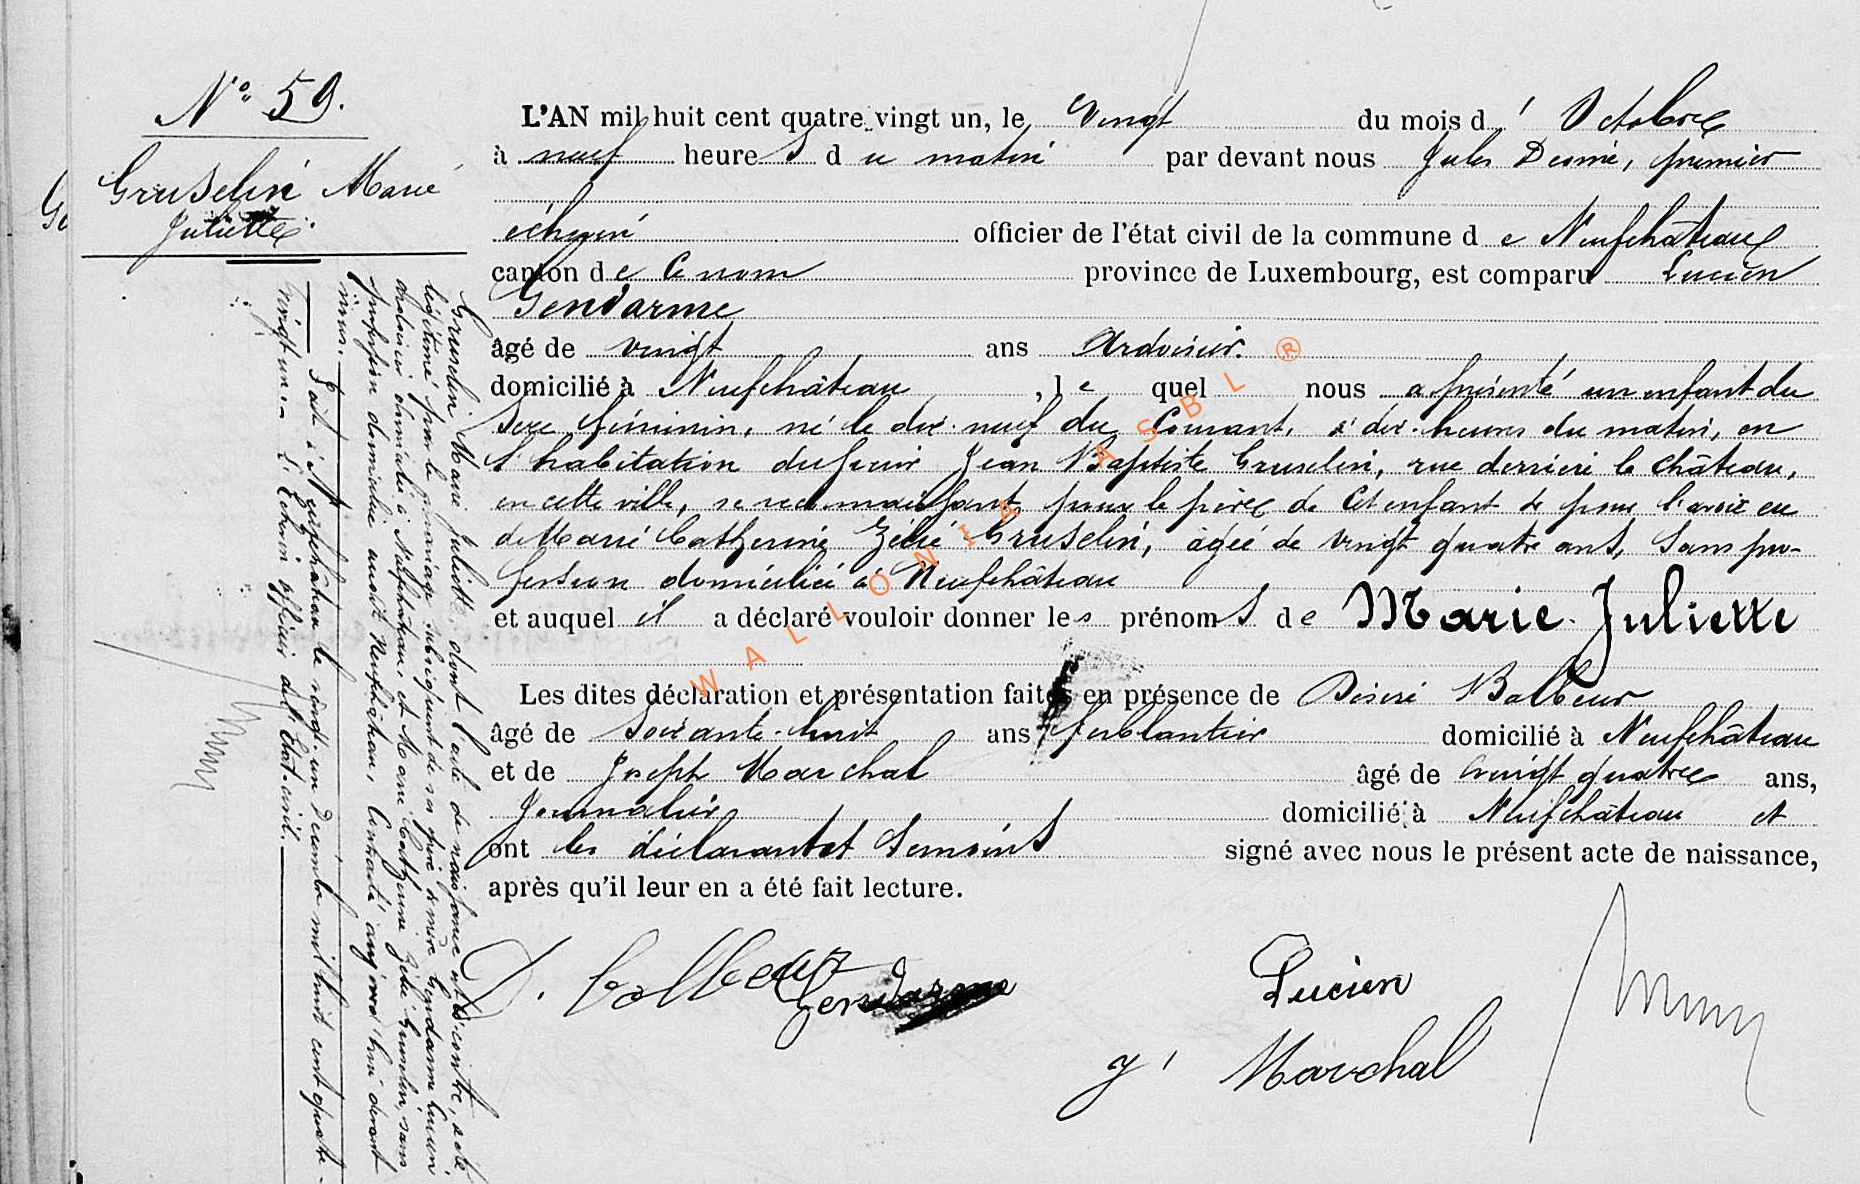 N° 59.
Gruselin Marie
Juliette.
L'AN mil huit cent quatre-vingt un, le Vingt du mois d' Octobre
à neuf heures du matin par devant nous Jules premier
échevin officier de l'état civil de la commune de Neufchâteau
canton de ce nom province de Luxembourg, est comparu Lucien
Gendarme
âgé de vingt ans Ardoisier.
domicilié à Neufchâteau, lequel nous a présenté un enfant du
sexe féminin, né le dix-neuf du courant, à dix heures du matin, en
l'habitation du sieur Jean Baptiste Gruselin, rue derrière le château,
en cette ville, se reconnaissant pour le père de cet enfant & pour l'avoir eu
de Marie Catherine Zélie Gruselin, âgée de vingt quatre ans, sans pro-
fession domiciliée à Neufchâteau
et auquel il a déclaré vouloir donner les prénoms de Marie-Juliette
Les dites déclaration et présentation faites en présence de Désiré Balbeur
âgé de soixante-huit ans ferblantier domicilié à Neufchâteau
et de Joseph Marchal âgé de vingt quatre ans,
Journalier domicilié à Neufchâteau et
ont les déclarant et témoins signé avec nous le présent acte de naissance,
après qu'il leur en a été fait lecture.
D. Balbeur Gendarme Lucien
J' Marchal
Gruselin Marie Juliette, dont l'acte de naissance est ci-contre, a été
légitimée par le mariage subséquent de ses père & mère Gendarme Lucien,
ardoisier domicilié à Neufchâteau, et Marie Catherine Zélie Gruselin, sans
profession domiciliée audit Neufchâteau, contracté aujourd'hui devant
nous.
Fait à Neufchâteau le vingt-un Décembre mil huit cent quatre-
vingt un.- L'Echevin officier de l'Etat-civil.
WALLONIA ASBL ®